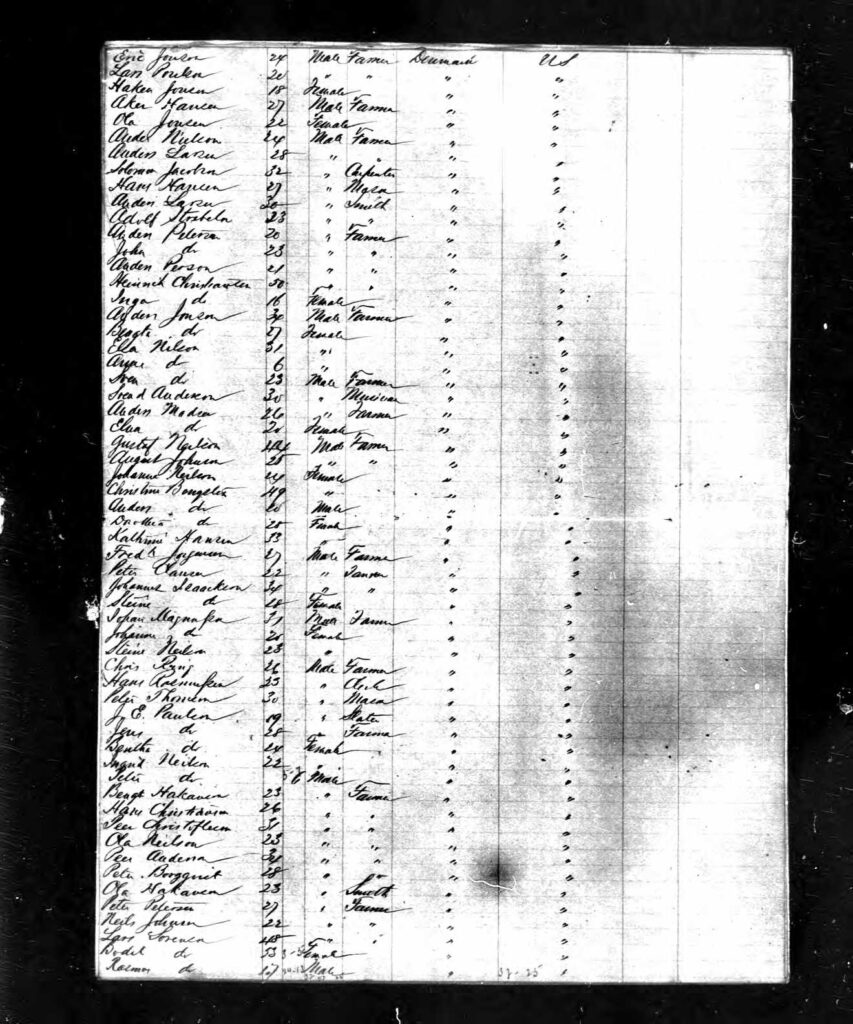 Eric Jonson 24 Male Farmer Denmark US
Lars Poulsen 20 " " " "
Haken Jonsen 18 Female " "
Aker Hansen 27 Male Farmer " "
Ola Jonsen 22 Female " "
Ander Nielson 24 Male Farmer " "
Anders Larsen 28 " " " "
Solomon Jacobsen 32 " Carpenter " "
Hans Hansen 27 " Mason " "
Anders Larsen 30 " Smith " "
Adolf 23 " " " "
Anders Peterson 20 " Farmer " "
John do 23 " " " "
Anders Person 21 " " " "
Heinrich Christiansen 50 " " " "
Inga do 16 Female " "
Anders Jonson 34 Male Farmer " "
Bengta do 27 Female " "
Elsa Nilson 31 " " "
Anna do 6 " " "
Sven do 23 Male Farmer " "
Svend Anderson 30 " Musician " "
Anders Madsen 26 " Farmer " "
Elna do 20 Female " "
Gustaf Neilson 44 Male Farmer " "
August Johnson 25 " " " "
Johanna Neilson 24 Female " "
Christine Bengsten 49 " " "
Anders do 20 Male " "
Dorothea do 25 Female " "
Kathrine Hansen 33 " " "
Fredk Jorgensen 27 Male Farmer " "
Peter Clausen 22 " Farmer " "
Johannes Isaackson 34 " " " "
Steine do 28 Female " "
Johan Magnussen 31 Male Farmer " "
Johanne do 20 Female " "
Steine Neilson 23 " " "
Chris Ryng 26 Male Farmer " "
Hans Rasmussen 23 " Clerk " "
Peter Thomsen 30 " Mason " "
J. E. Paulson 19 " Slater " "
Jens do 28 " Farmer " "
Benthe do 24 Female " "
Ingrid Neilson 22 " " "
Peter do 6 Male " "
Bengt Hakansen 23 " Farmer " "
Hans Christiansen 26 " " " "
Peer 31 " " " "
Ola Neilson 23 " " " "
Peer Anderson " " " "
Peter Borgquist 28 " " " "
Ola Hakansen 23 " Smith " "
Peter Petersen 27 " Farmer " "
Neils Johnson 22 " " " "
Lars Sorensen 48 " " " "
Bodel do 53 Female " "
Rasmus do 17 Male " 37-25 "